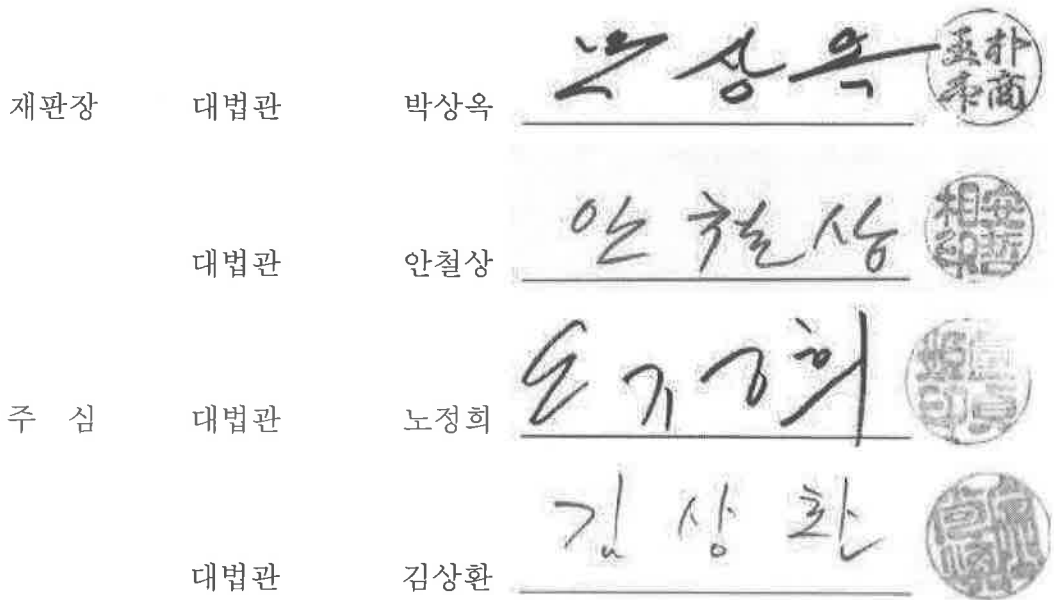 재판장 대법관 박상옥 박상옥 朴商玉印
대법관 안철상 안철상 安哲相印
주 심 대법관 노정희 노정희
대법관 김상환 김상환